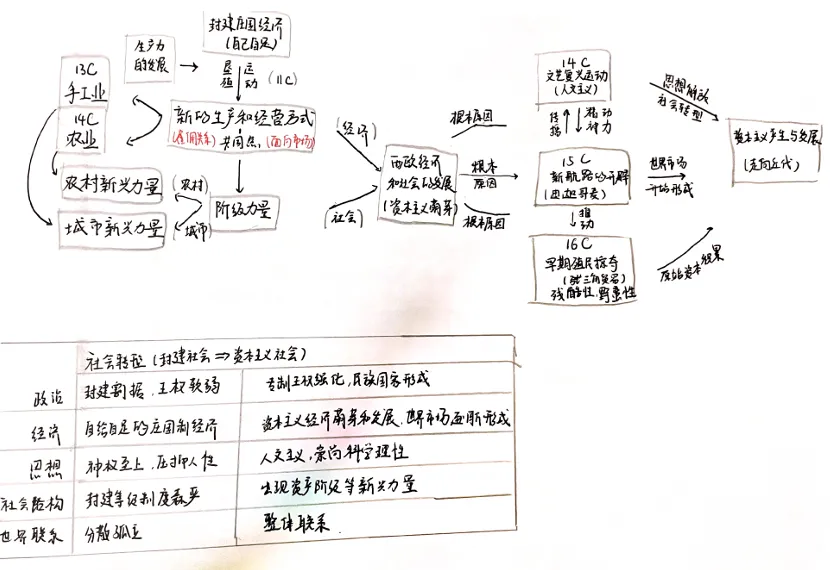 封建庄园经济
(自己自足)
生产力
的发展
垦殖
运动
(11C)
13C
手工业
14C
农业
新的生产和经营方式
(雇佣关系)
共同点:
(面向市场)
农村新兴力量
(农村)
城市新兴力量
(城市)
阶级力量
(经济)
(社会)
西欧经济
和社会的发展
(资本主义萌芽)
根本原因
根本
原因
根本原因
14C
文艺复兴运动
(人文主义)
传播
精动
神力
15C
新航路的开辟
(西迪哥麦)
推动
16C
早期殖民掠夺
( 三角贸易)
残酷性,野蛮性
思想解放
社会转型
世界市场
开始形成
原始资本积累
资本主义产生与发展
(走向近代)
社会转型(封建社会⇒资本主义社会)
政治
封建割据,王权软弱
专制王权强化,民族国家形成
经济
自给自足的庄园制经济
资本主义经济萌芽和发展,世界市场逐渐形成
思想
神权至上,压抑人性
人文主义,崇尚科学理性
社会结构
封建等级制度森严
出现资产阶级等新兴力量
世界联系
分散孤立
整体联系